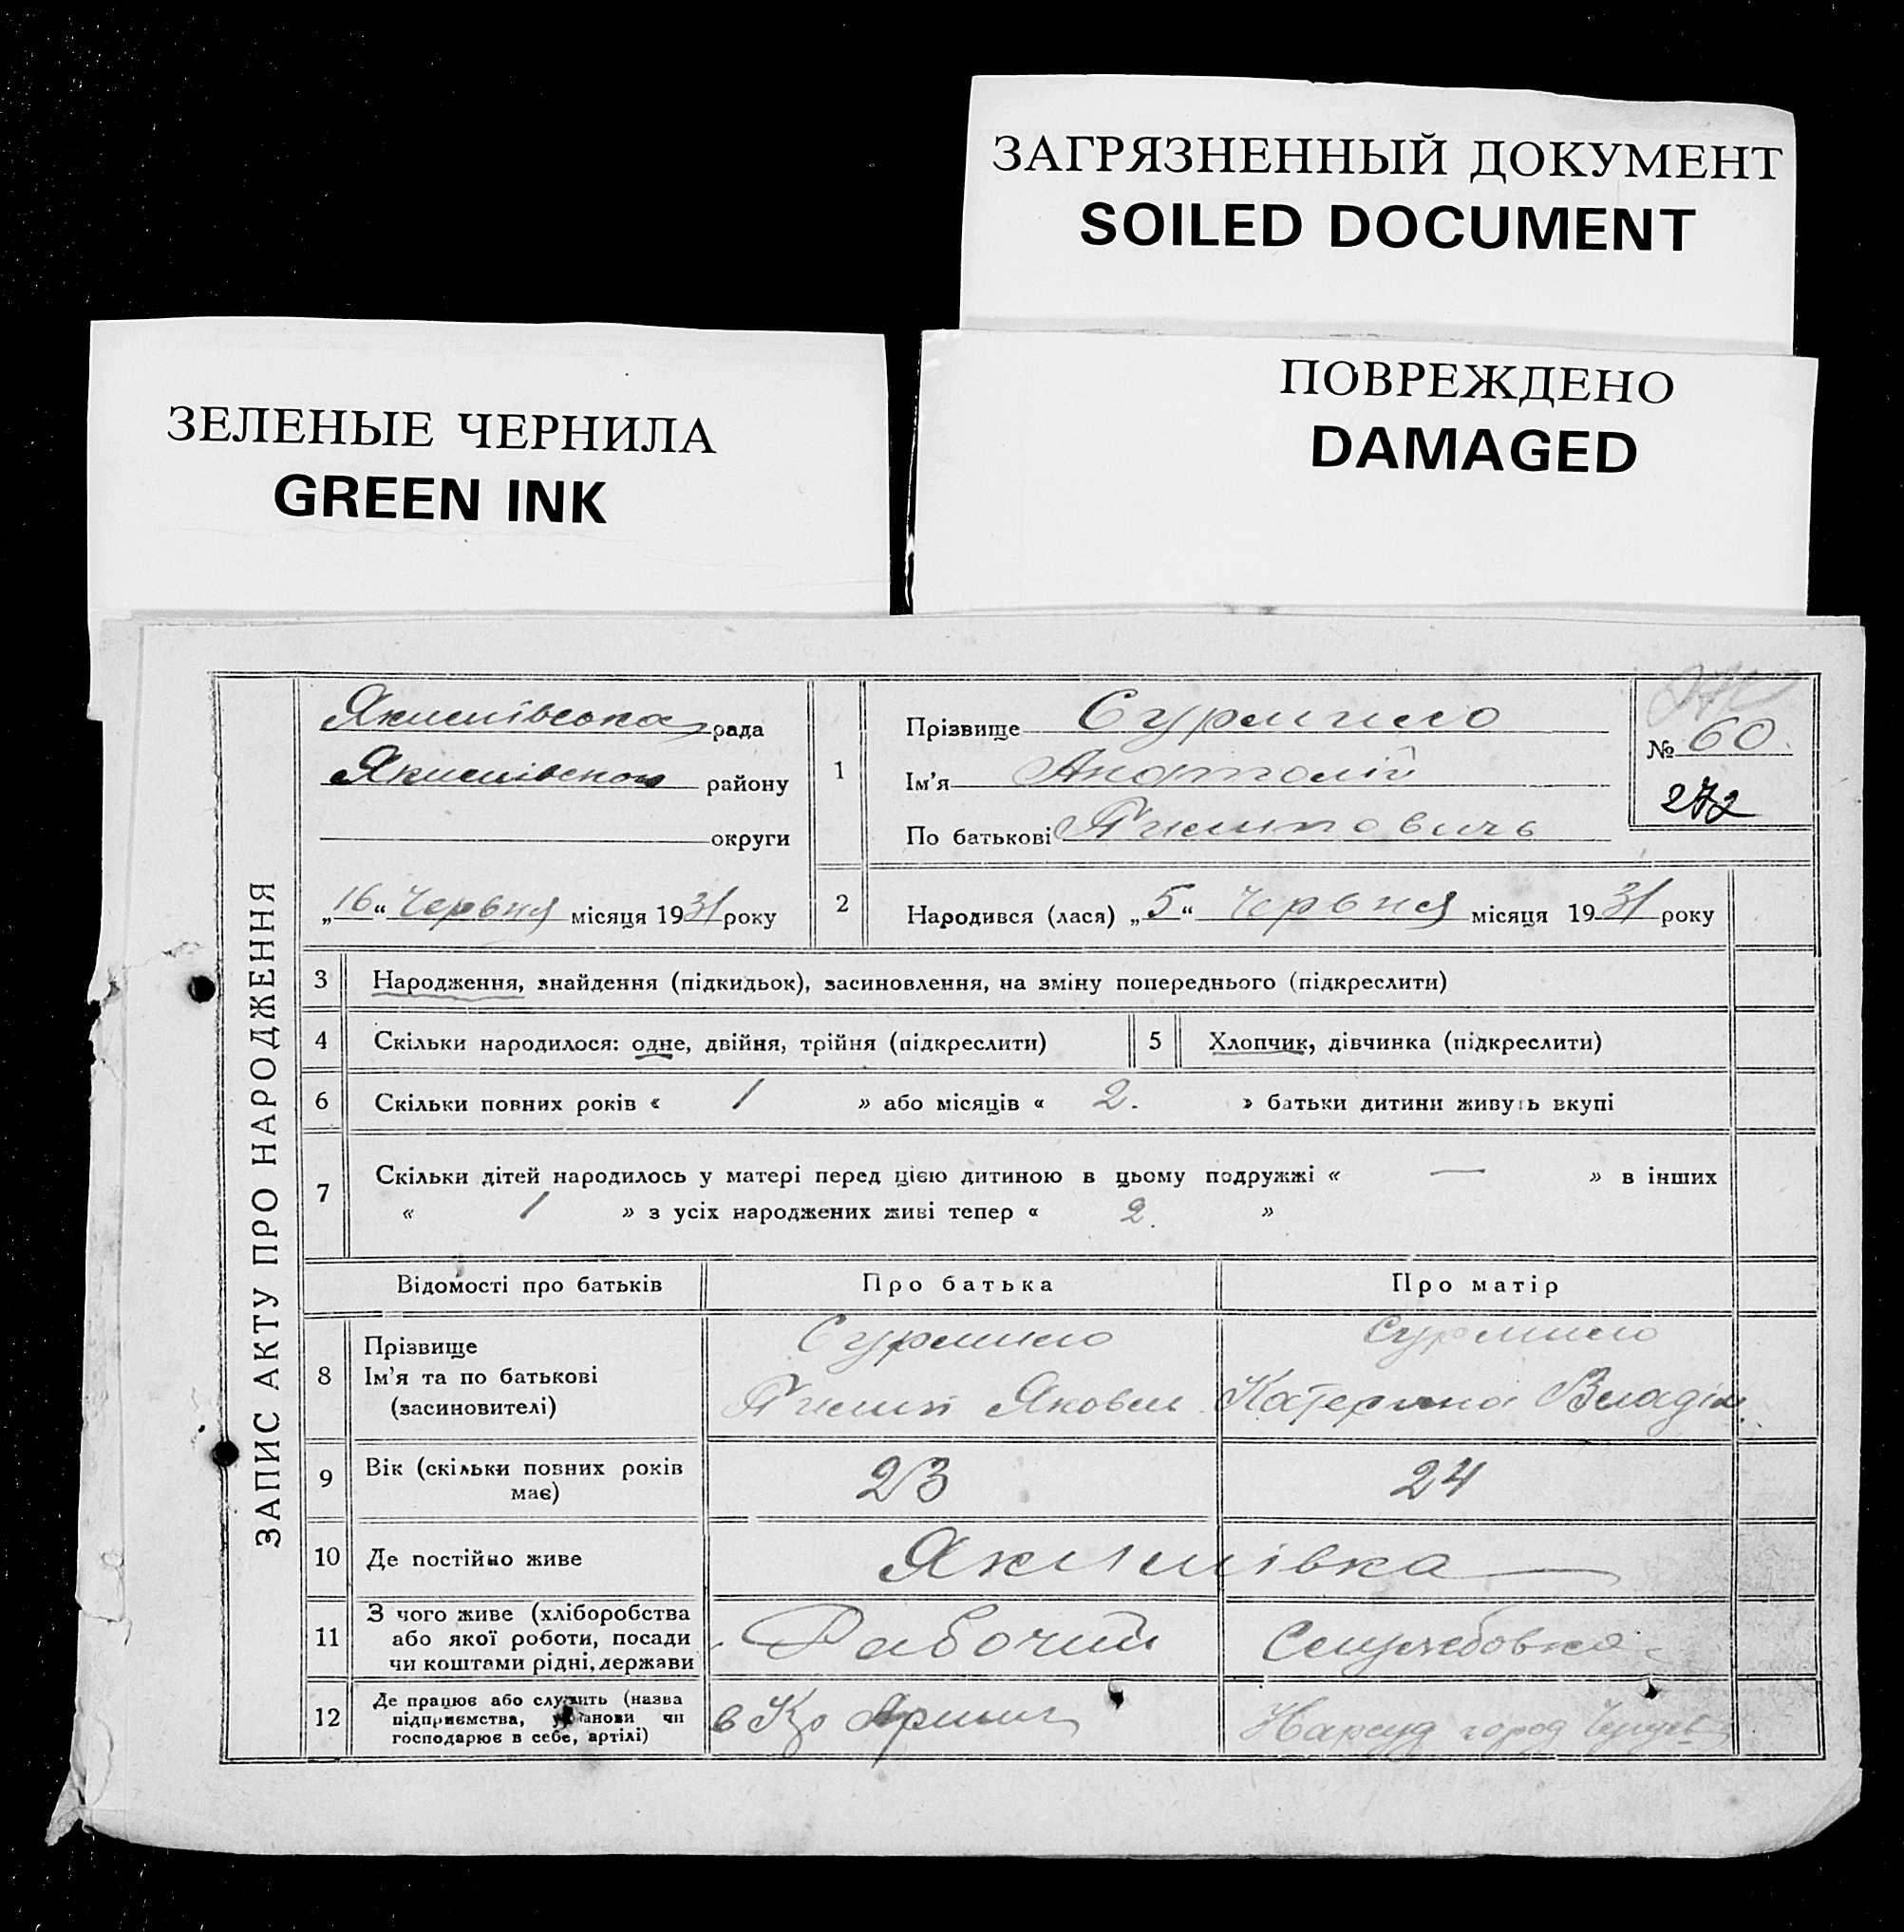 ЗАГРЯЗНЕННЫЙ ДОКУМЕНТ
SOILED DOCUMENT
ПОВРЕЖДЕНО
DAMAGED
ЗЕЛЕНЫЕ ЧЕРНИЛА
GREEN INK
ЗАПИС АКТУ ПРО НАРОДЖЕННЯ
Якимівська рада
Якимівського району
округи
„16“ Червня місяця 1931 року
1
Прізвище Сурмило
Ім'я Анатолій
По батькові
№ 60
272
2 Народився (лася) „5“ Червня місяця 1931 року
3 Народження, знайдення (підкидьок), засиновлення, на зміну попереднього (підкреслити)
4 Скільки народилося: одне, двійня, трійня (підкреслити) 5 Хлопчик, дівчинка (підкреслити)
6 Скільки повних років « 1 » або місяців « 2. » батьки дитини живуть вкупі
7 Скільки дітей народилось у матері перед цією дитиною в цьому подружжі « — » в інших
« 1 » з усіх народжених живі тепер « 2. »
Відомості про батьків Про батька Про матір
8 Прізвище Сурмило Сурмило
Ім'я та по батькові Яковл Катерина Владім.
(засиновителі)
9 Вік (скільки повних років має) 23 24
10 Де постійно живе Якимівка
11 З чого живе (хліборобства
або якої роботи, посади Рабочий Службовка
чи коштами рідні, держави
12 Де працює або служить (назва
підприємства, установи чи в Кр Армии Нарсуд город
господарює в себе, артілі)